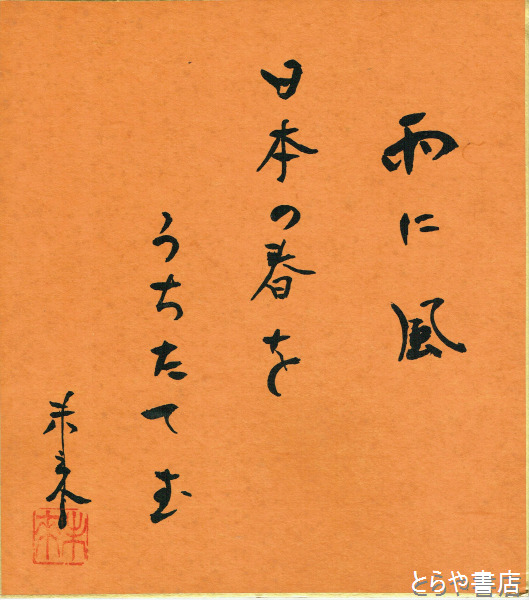 雨に風
日本の春を
うちたてむ
未来
とらや書店